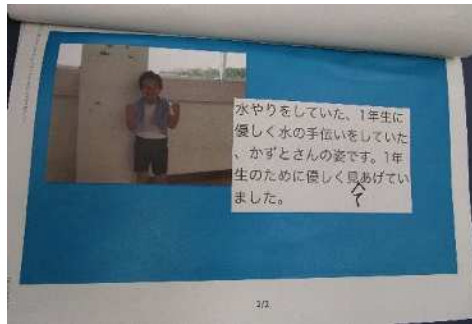 水やりをしていた、1年生に
優しく水の手伝いをしていた
、かずとさんの姿です。1年
生のために優しく見あげてい
て
ました。
2/2